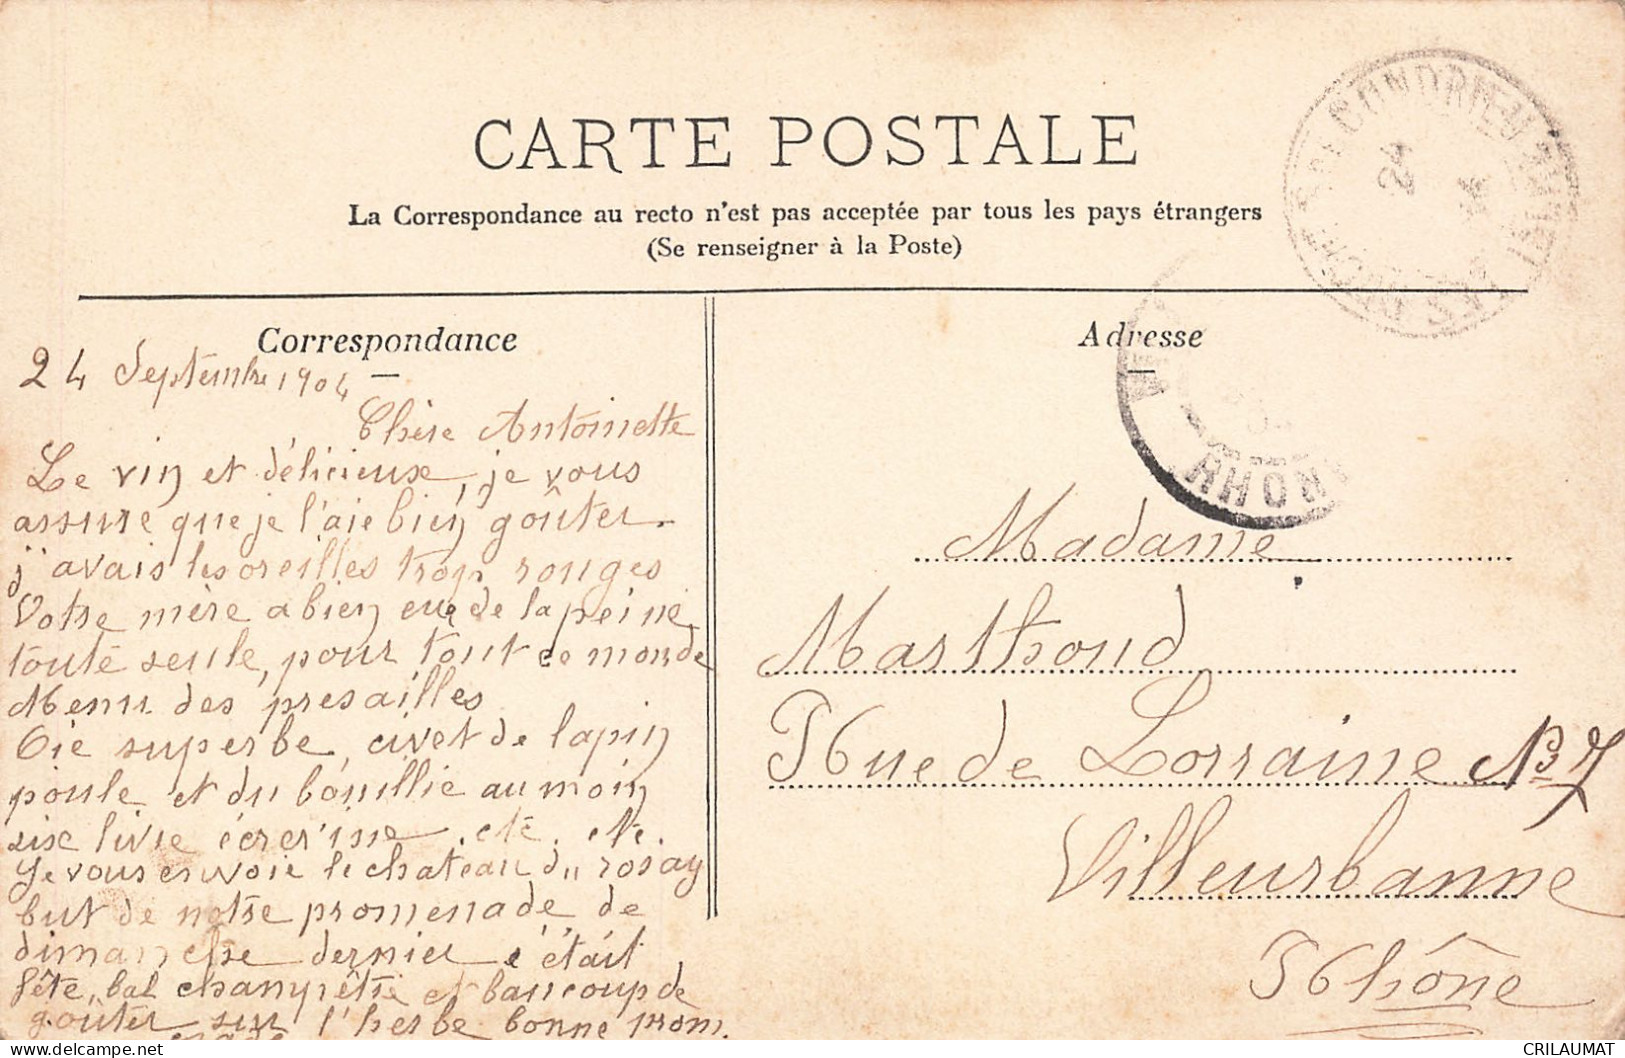 CARTE POSTALE
La Correspondance au recto n'est pas acceptée par tous les pays étrangers
(Se renseigner à la Poste)
Correspondance
Adresse
24 Septembre 1904
Chère Antoinette
Le vin et délicieux, je vous
assure que je l'aie bien goûter.
j'avais les oreilles trop rouges
Votre mère a bien eue de la peine
toute seule, pour tout ce monde
Menu des presailles
Oie superbe, civet de lapin
poule et du bouillie au moin
six livre écrevine, etc. etc.
Je vous envoie le chateau du rosay
but de notre promenade de
dimanche dernier c'était
fête, bal champêtre et baucoup de
goûter sur l'herbe bonne prom.
enade
Madame
Marthoud
Rue de Lorraine No 7
Villeurbanne
Rhône
CONDRIEU
24
RHONE
CRILAUMAT